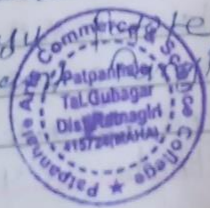 Patpanhale Arts Commerce & Science College ★
Patpanhale
Tal.Guhagar
Dist.Ratnagiri
415724(MAHA)